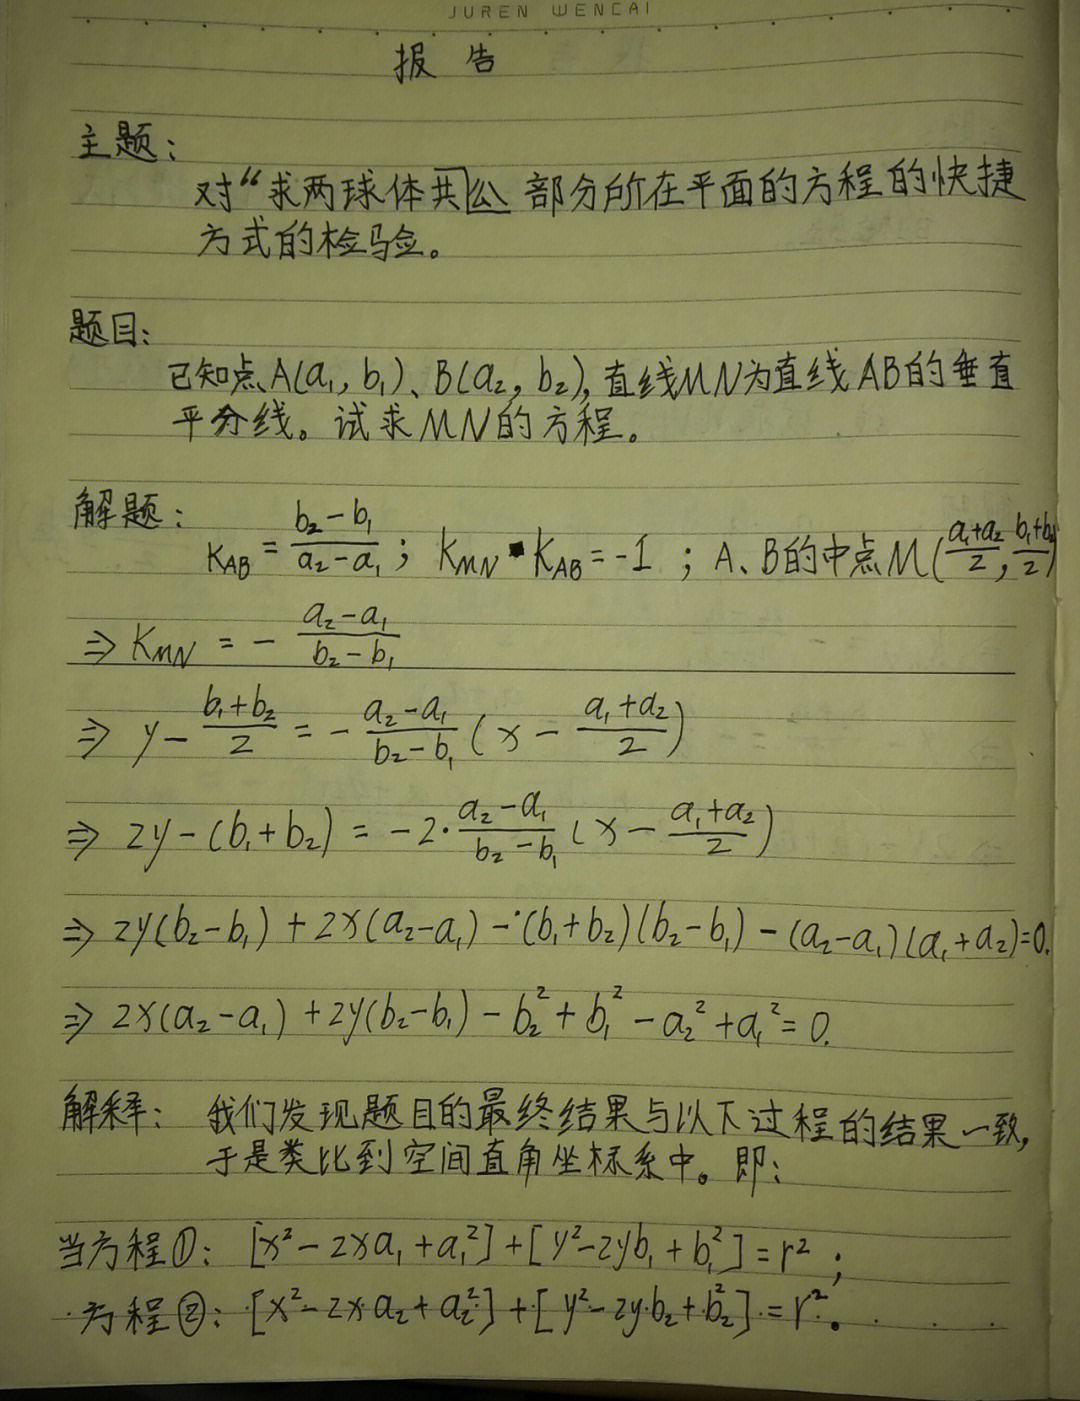 JUREN WENCAI
报告
主题:
对“求两球体共公部分所在平面的方程的快捷
方式的检验。
题目:
已知点A(a₁, b₁)、B(a₂, b₂), 直线MN为直线AB的垂直
平分线。试求MN的方程。
解题: K_AB = (b₂-b₁)/(a₂-a₁); K_MN · K_AB = -1; A、B的中点M((a₁+a₂)/2, (b₁+b₂)/2)
⇒ K_MN = - (a₂-a₁)/(b₂-b₁)
⇒ y - (b₁+b₂)/2 = - (a₂-a₁)/(b₂-b₁) (x - (a₁+a₂)/2)
⇒ 2y-(b₁+b₂) = -2·(a₂-a₁)/(b₂-b₁) (x - (a₁+a₂)/2)
⇒ 2y(b₂-b₁) + 2x(a₂-a₁) - (b₁+b₂)(b₂-b₁) - (a₂-a₁)(a₁+a₂)=0.
⇒ 2x(a₂-a₁) + 2y(b₂-b₁) - b₂² + b₁² - a₂² + a₁² = 0.
解释: 我们发现题目的最终结果与以下过程的结果一致,
于是类比到空间直角坐标系中。即:
当方程①: [x²-2xa₁+a₁²]+[y²-2yb₁+b₁²]=r²;
方程②: [x²-2x·a₂+a₂²]+[y²-2y·b₂+b₂²]=r².